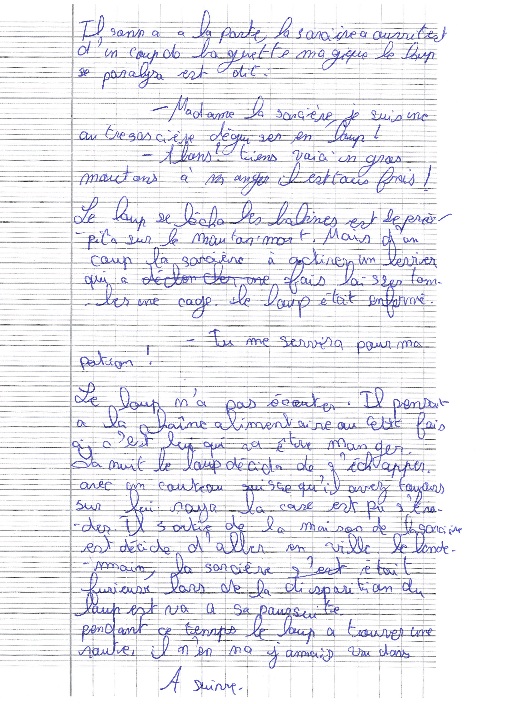 Il sonna a la porte, la sorcière a ouvrit est
d'un coup de baguette magique le loup
se paralysa est dit.
- Madame la sorcière, je suis une
autre sorcière déguiser en loup !
- Ah bons! tiens voici un gros
moutons à manger il est tous frais !
Le loup se lécha les babines est se préci-
-pita sur le mouton mort. Mais d'un
coup la sorcière à actirer un levrier
qui a une fois laisser tom-
-ber une cage. le loup était enfermé.
- Tu me servira pour ma
potion !
Le loup n'a pas écouter. Il pensait
a la chaîne alimentaire au cette fois
c'est lui qui va être manger.
La nuit le loup décida de s'échapper.
avec un couteau suisse qu'il avez toujours
sur lui raya la cage est pu s'éva-
-der. Il sortie de la maison de la sorcière
est décide d'aller en ville le lende-
-main, la sorcière s'est était
furieuse lors de la disparition du
loup est va a sa poursuite
pendant ce temps le loup a trouver une
route, il n'en na jamais vu dans
A suivre.